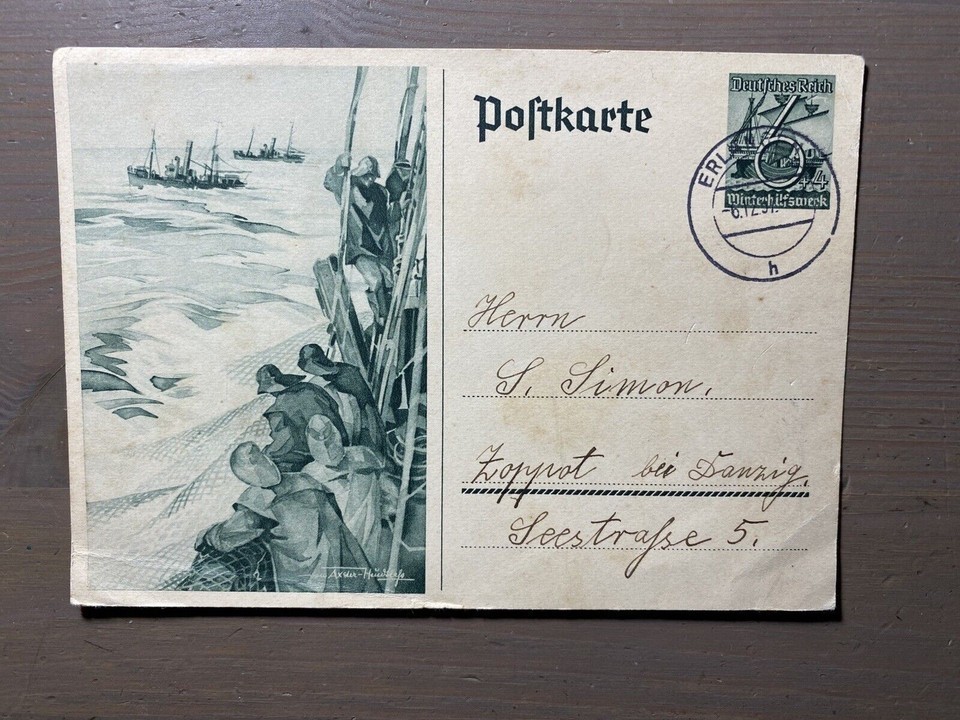 Postkarte
Deutsches Reich
+4
Winterhilfswerk
ERL
-6.12.37.
h
Herrn
S. Simon.
Zoppot bei Danzig.
Seestraße 5.
Axster-Heudtlaß